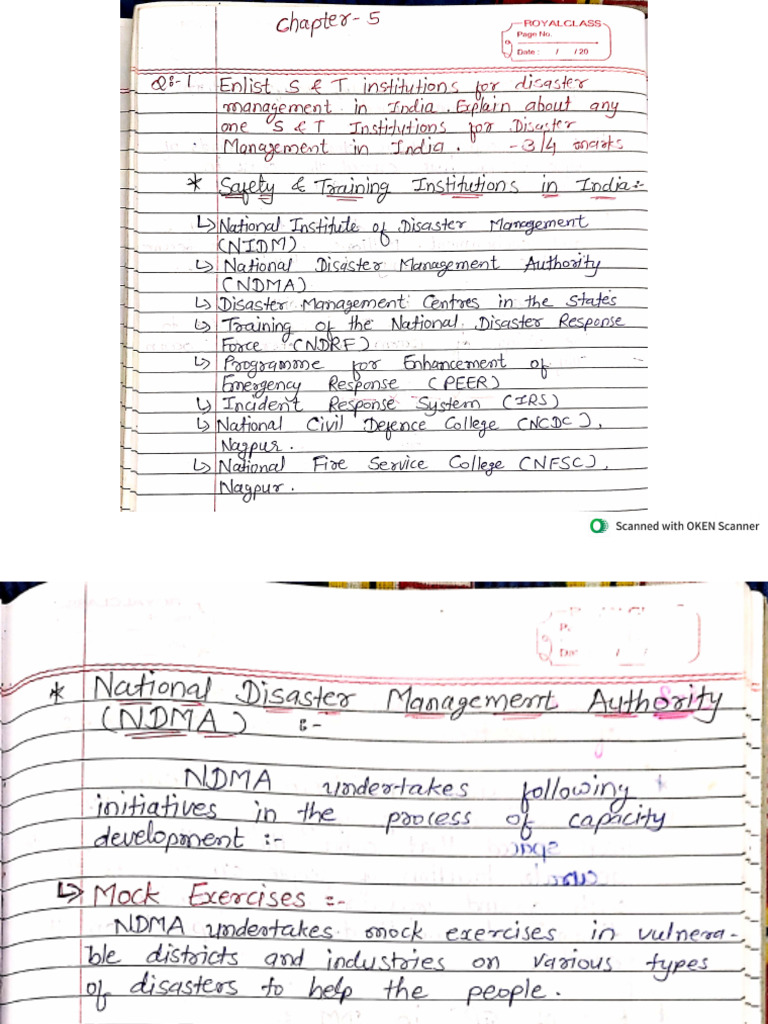 Chapter-5
ROYALCLASS
Page No.
Date : / /20
Q:-1 Enlist S & T institutions for disaster
management in India. Explain about any
one S & T Institutions for Disaster
Management in India. -3/4 marks
* Safety & Training Institutions in India:-
↳ National Institute of Disaster Management
(NIDM)
↳ National Disaster Management Authority
(NDMA)
↳ Disaster Management Centres in the States
↳ Training of the National Disaster Response
Force (NDRF)
↳ Programme for Enhancement of
Emergency Response (PEER)
↳ Incident Response System (IRS)
↳ National Civil Defence College (NCDC),
Nagpur.
↳ National Fire Service College (NFSC),
Nagpur.
Scanned with OKEN Scanner
* National Disaster Management Authority
(NDMA) :-
NDMA undertakes following
initiatives in the process of capacity
development :-
↳ Mock Exercises :-
NDMA undertakes mock exercises in vulnera-
ble districts and industries on various types
of disasters to help the people.